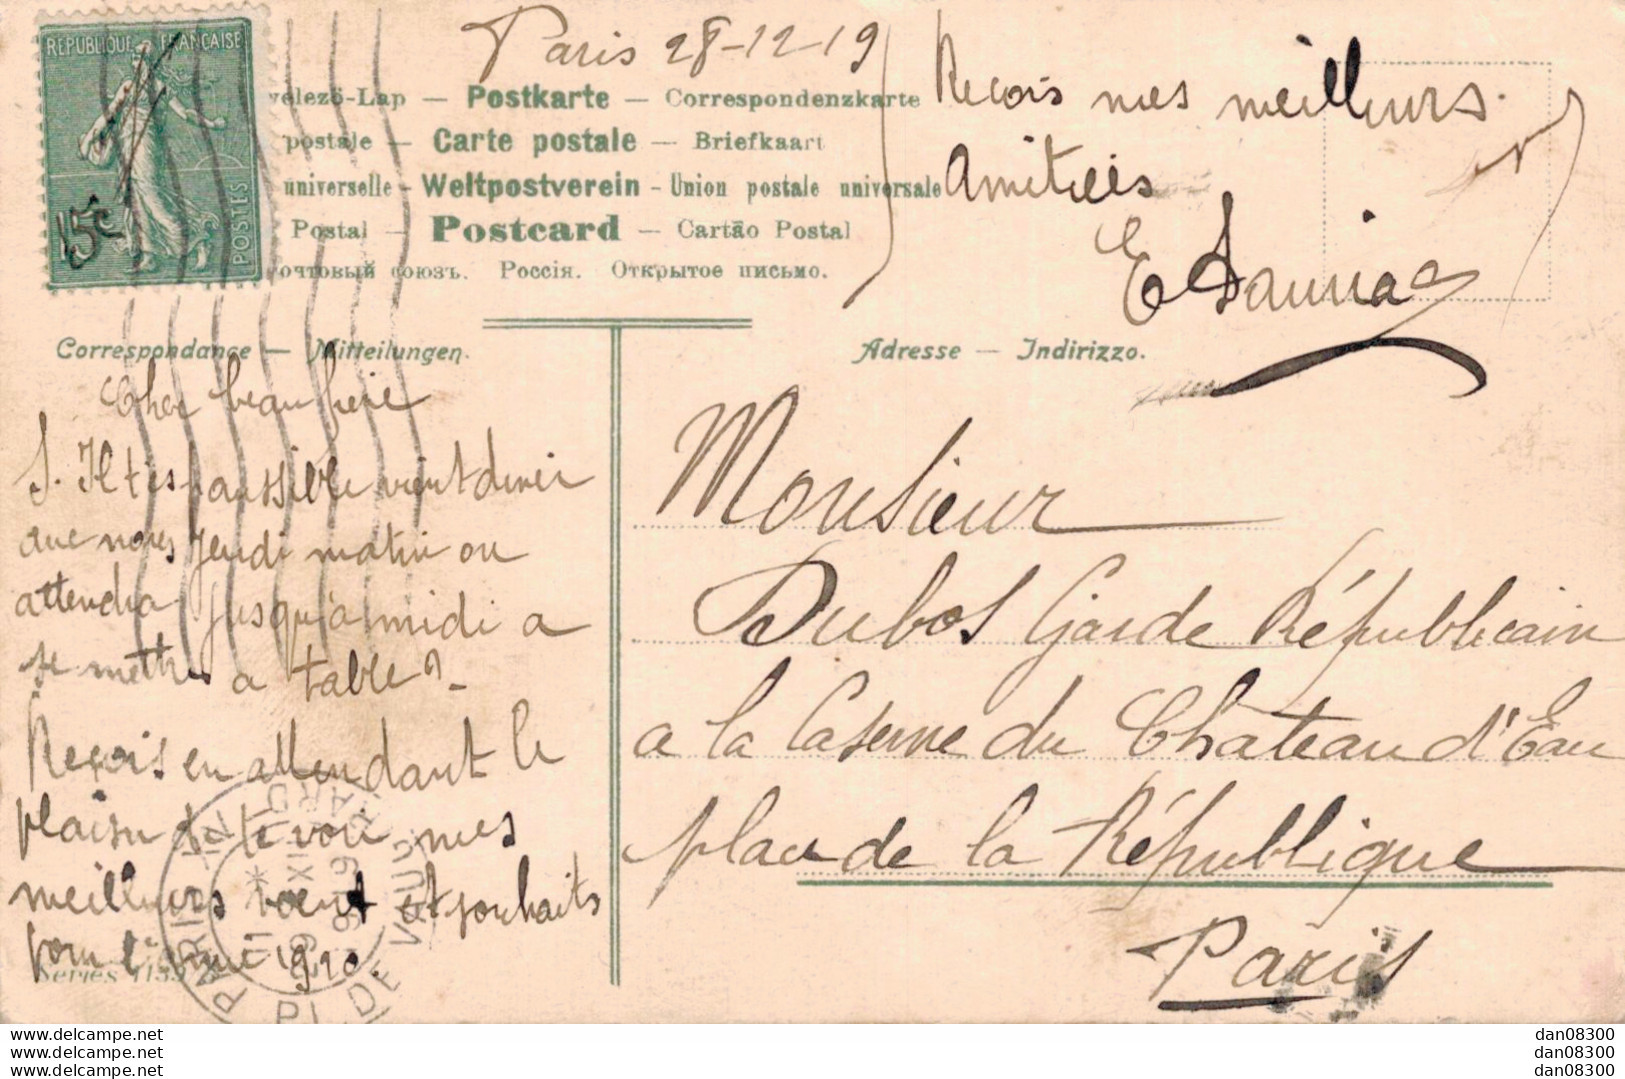 REPUBLIQUE FRANÇAISE
POSTES
15c
Paris 28-12-19
velező-Lap — Postkarte — Correspondenzkarte
postale — Carte postale — Briefkaart
universelle — Weltpostverein — Union postale universale
Postal — Postcard — Cartão Postal
почтовый союзъ. Россія. Открытое письмо.
Reçois mes meilleurs
Amitiées
E Sauriac
Correspondance — Mitteilungen.
Adresse — Indirizzo.
Cher beau frère
S. Il t'es possible vient diner
avec nous Jeudi matin ou
attendra jusqu'à midi a
se mettre a table?
Reçois en attendant le
plaisir de te voir mes
meilleurs voeux et souhaits
pour l'année 1920.
Series 1133
Monsieur
Dubos Garde Républicain
a la Caserne du Chateau d'Eau
place de la République
Paris
PARIS
PL. DE VAUGIRARD
dan08300
dan08300
dan08300
www.delcampe.net
www.delcampe.net
www.delcampe.net